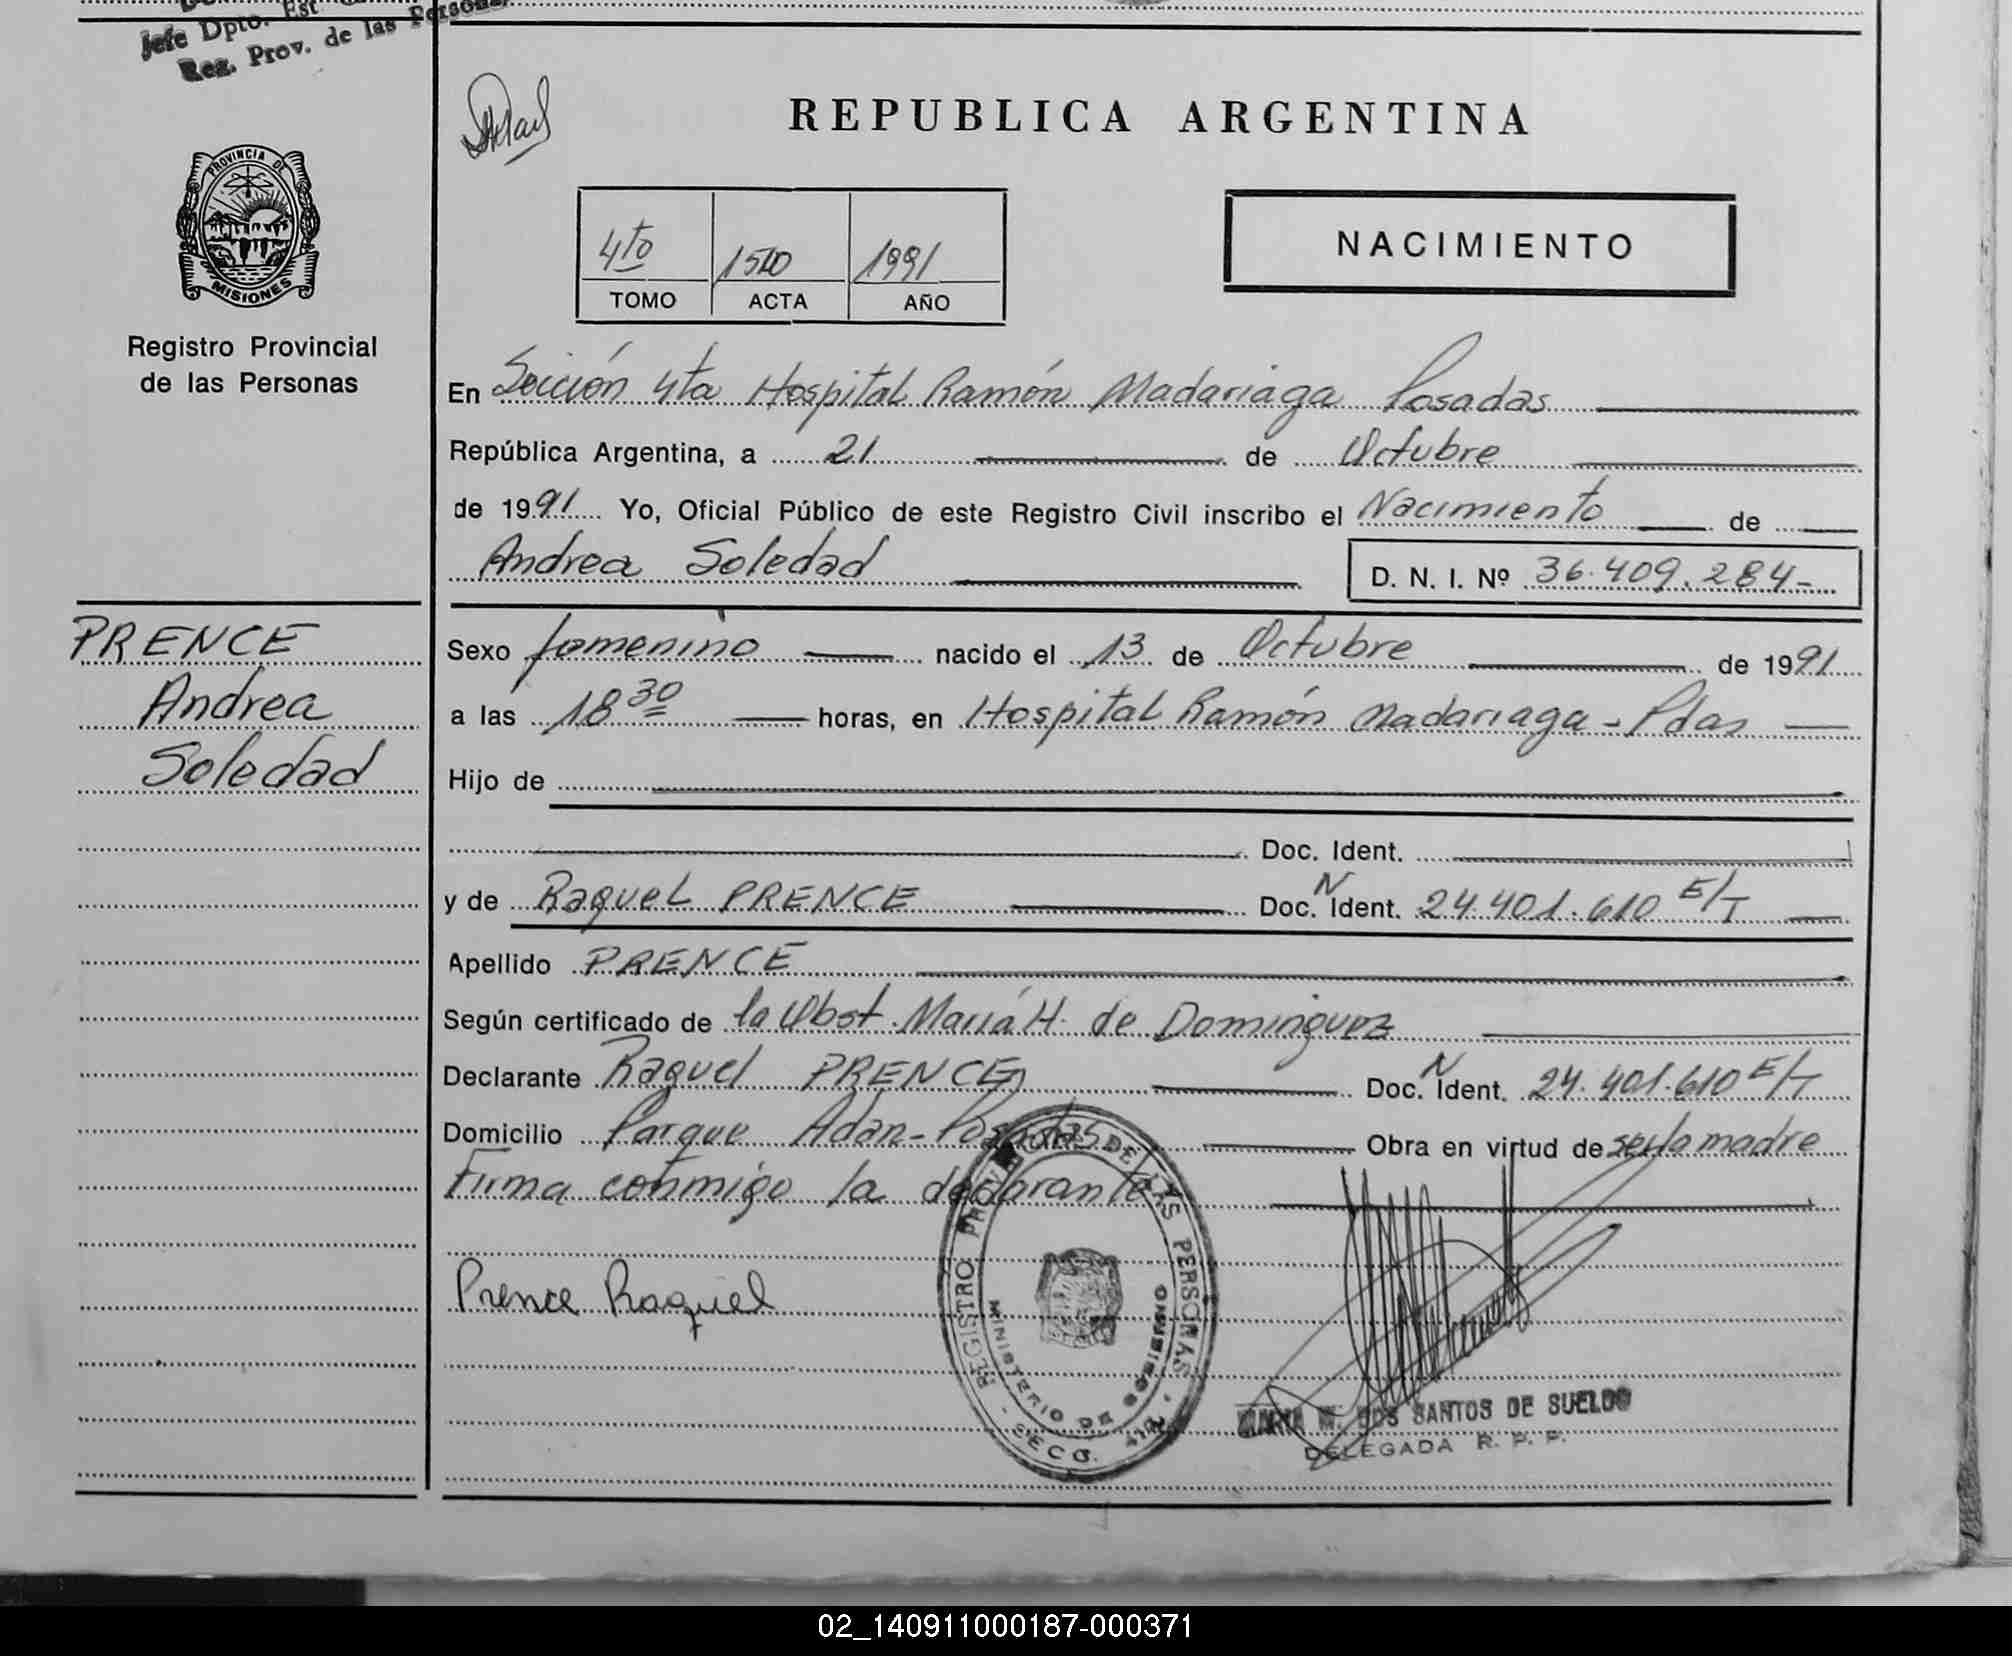 Jefe Dpto. Est.
Reg. Prov. de las Personas
PROVINCIA DE
MISIONES
Registro Provincial
de las Personas
PRENCE
Andrea
Soledad
REPUBLICA ARGENTINA
4to 1510 1991
TOMO ACTA AÑO
NACIMIENTO
En Sección 4ta Hospital Ramón Madariaga Posadas
República Argentina, a 21 de Octubre
de 1991 Yo, Oficial Público de este Registro Civil inscribo el Nacimiento de
Andrea Soledad D. N. I. Nº 36.409.284-
Sexo femenino nacido el 13 de Octubre de 1991
a las 18 30 horas, en Hospital Ramón Madariaga - Pdas
Hijo de
Doc. Ident.
y de Raquel PRENCE Doc. N Ident. 24.401.610 E/T
Apellido PRENCE
Según certificado de la Obst. María H. de Dominguez
Declarante Raquel PRENCE Doc. N Ident. 24.401.610 E/T
Domicilio Parque Adan - Posadas Obra en virtud de ser la madre
Firma conmigo la declarante
Prence Raquel
REGISTRO PROVINCIAL DE LAS PERSONAS
MINISTERIO DE GOBIERNO
SECC. 4ta
MARIA M. DOS SANTOS DE SUELDO
DELEGADA R. P. P.
02_140911000187-000371